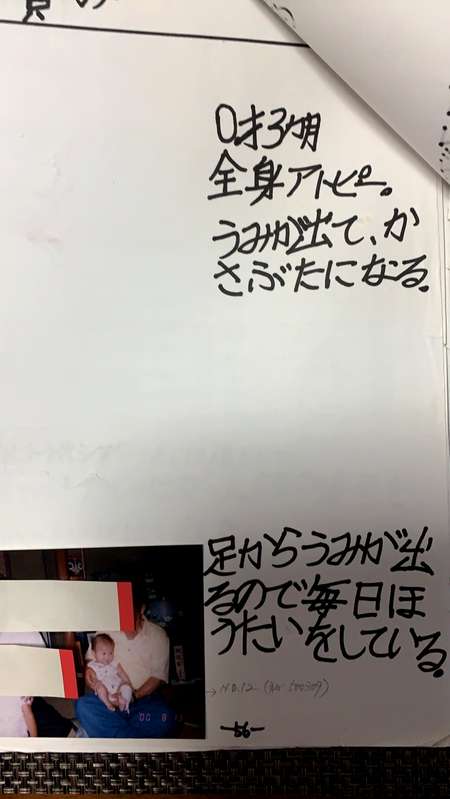 0才3ヶ月
全身アトピー。
うみが出て、か
さぶたになる。
足からうみが出
るので毎日ほ
うたいをしている。
→ NO.12
-56-